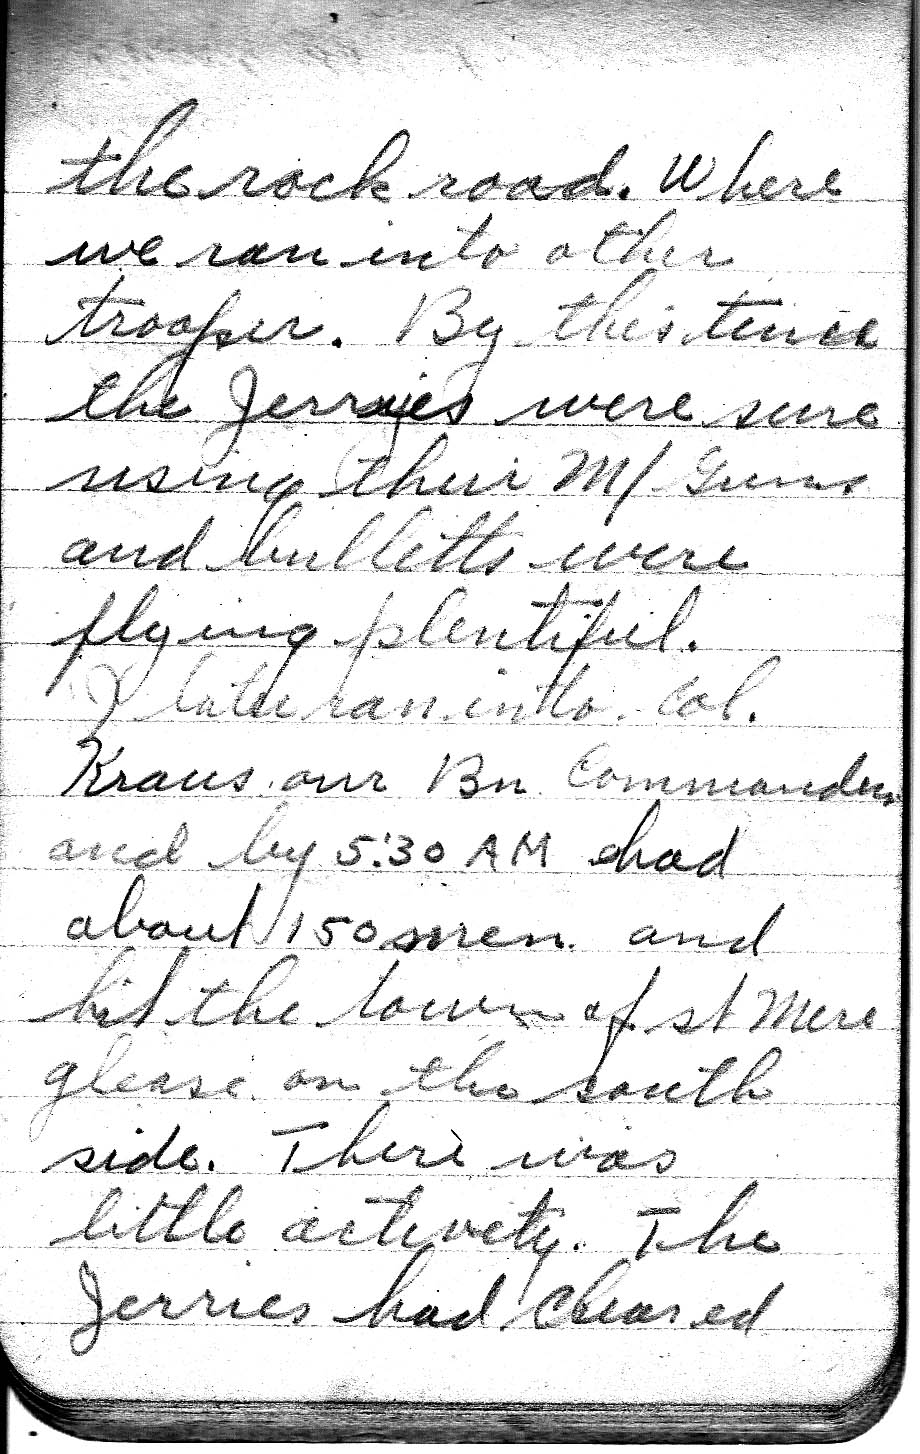 the rock road. Where
we ran into other
trooper. By this time
the Jerries were sure
using their M/ Guns
and bulletts were
flying plentiful.
I later ran into Col.
Kraus our Bn Commander
and by 5:30 AM had
about 150 men. and
hit the town of st Mere
glease on the south
side. There was
little activety. The
Jerries had cleared